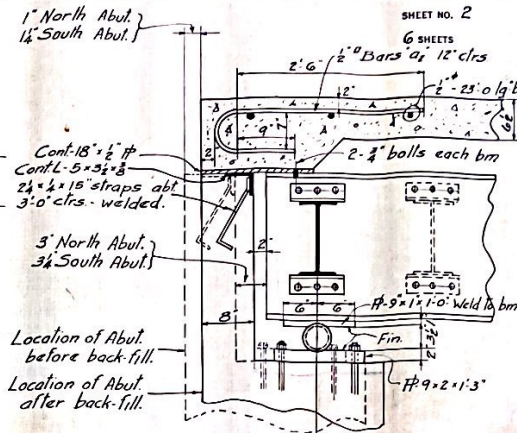 1" North Abut.
1¼" South Abut.
SHEET NO. 2
6 SHEETS
2'-6"
½"□ Bars "a₂" 12" ctrs
2"
½"ᶲ-23'-0 lg "b
9"
7"
6½"
2"
Cont-18" x ½" ℙ
Cont L-5 x 3½ x ⅜
2¼ x ¼ x 15" straps abt
3'-0" ctrs.- welded.
2-¾" bolts each bm
3" North Abut.
3¼" South Abut.
2"
6" 6"
ℙ-9" x 1 x 1'-0" Weld to bm
8"
Fin.
2'-3½"
Location of Abut.
before back-fill.
Location of Abut.
after back-fill.
ℙ 9 x 2 x 1'-3"